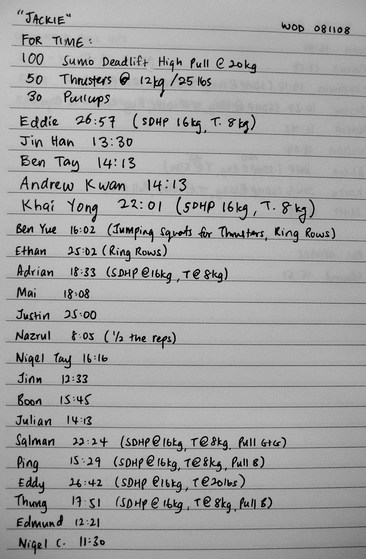 "JACKIE"
WOD 081108
FOR TIME:
100 Sumo Deadlift High Pull @ 20kg
50 Thrusters @ 12kg/25lbs
30 Pullups
Eddie 26:57 (SDHP 16kg, T. 8kg)
Jin Han 13:30
Ben Tay 14:13
Andrew Kwan 14:13
Khai Yong 22:01 (SDHP 16kg, T. 8kg)
Ben Yue 16:02 (Jumping Squats for Thrusters, Ring Rows)
Ethan 25:02 (Ring Rows)
Adrian 18:33 (SDHP@16kg, T@8kg)
Mai 18:08
Justin 25:00
Nazrul 8:05 (1/2 the reps)
Nigel Tay 16:16
Jinn 12:33
Boon 15:45
Julian 14:13
Salman 22:24 (SDHP@16kg, T@8kg, Pull
Ping 15:29 (SDHP@16kg, T@8kg, Pull B)
Eddy 26:42 (SDHP@16kg, T@20lbs)
Thung 17:51 (SDHP@16kg, T@8kg, Pull B)
Edmund 12:21
Nigel C. 11:30